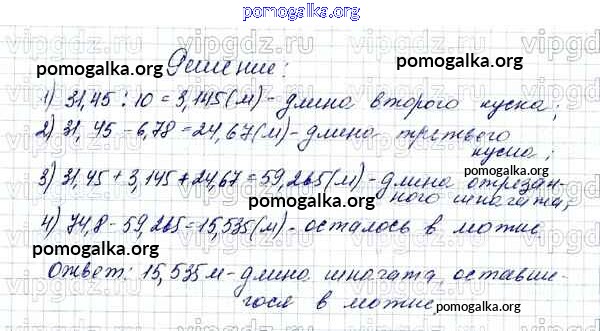 pomogalka.org
Решение:
1) 31,45 : 10 = 3,145 (м) - длина второго куска;
2) 31,45 - 6,78 = 24,67 (м) - длина третьего
куска;
3) 31,45 + 3,145 + 24,67 = 59,265 (м) - длина отрезан-
ного шпагата;
4) 74,8 - 59,265 = 15,535 (м) - осталось в мотке.
Ответ: 15,535 м - длина шпагата, оставше-
гося в мотке.
pomogalka.org
pomogalka.org
pomogalka.org
pomogalka.org
pomogalka.org
pomogalka.org
pomogalka.org
vipgdz.ru